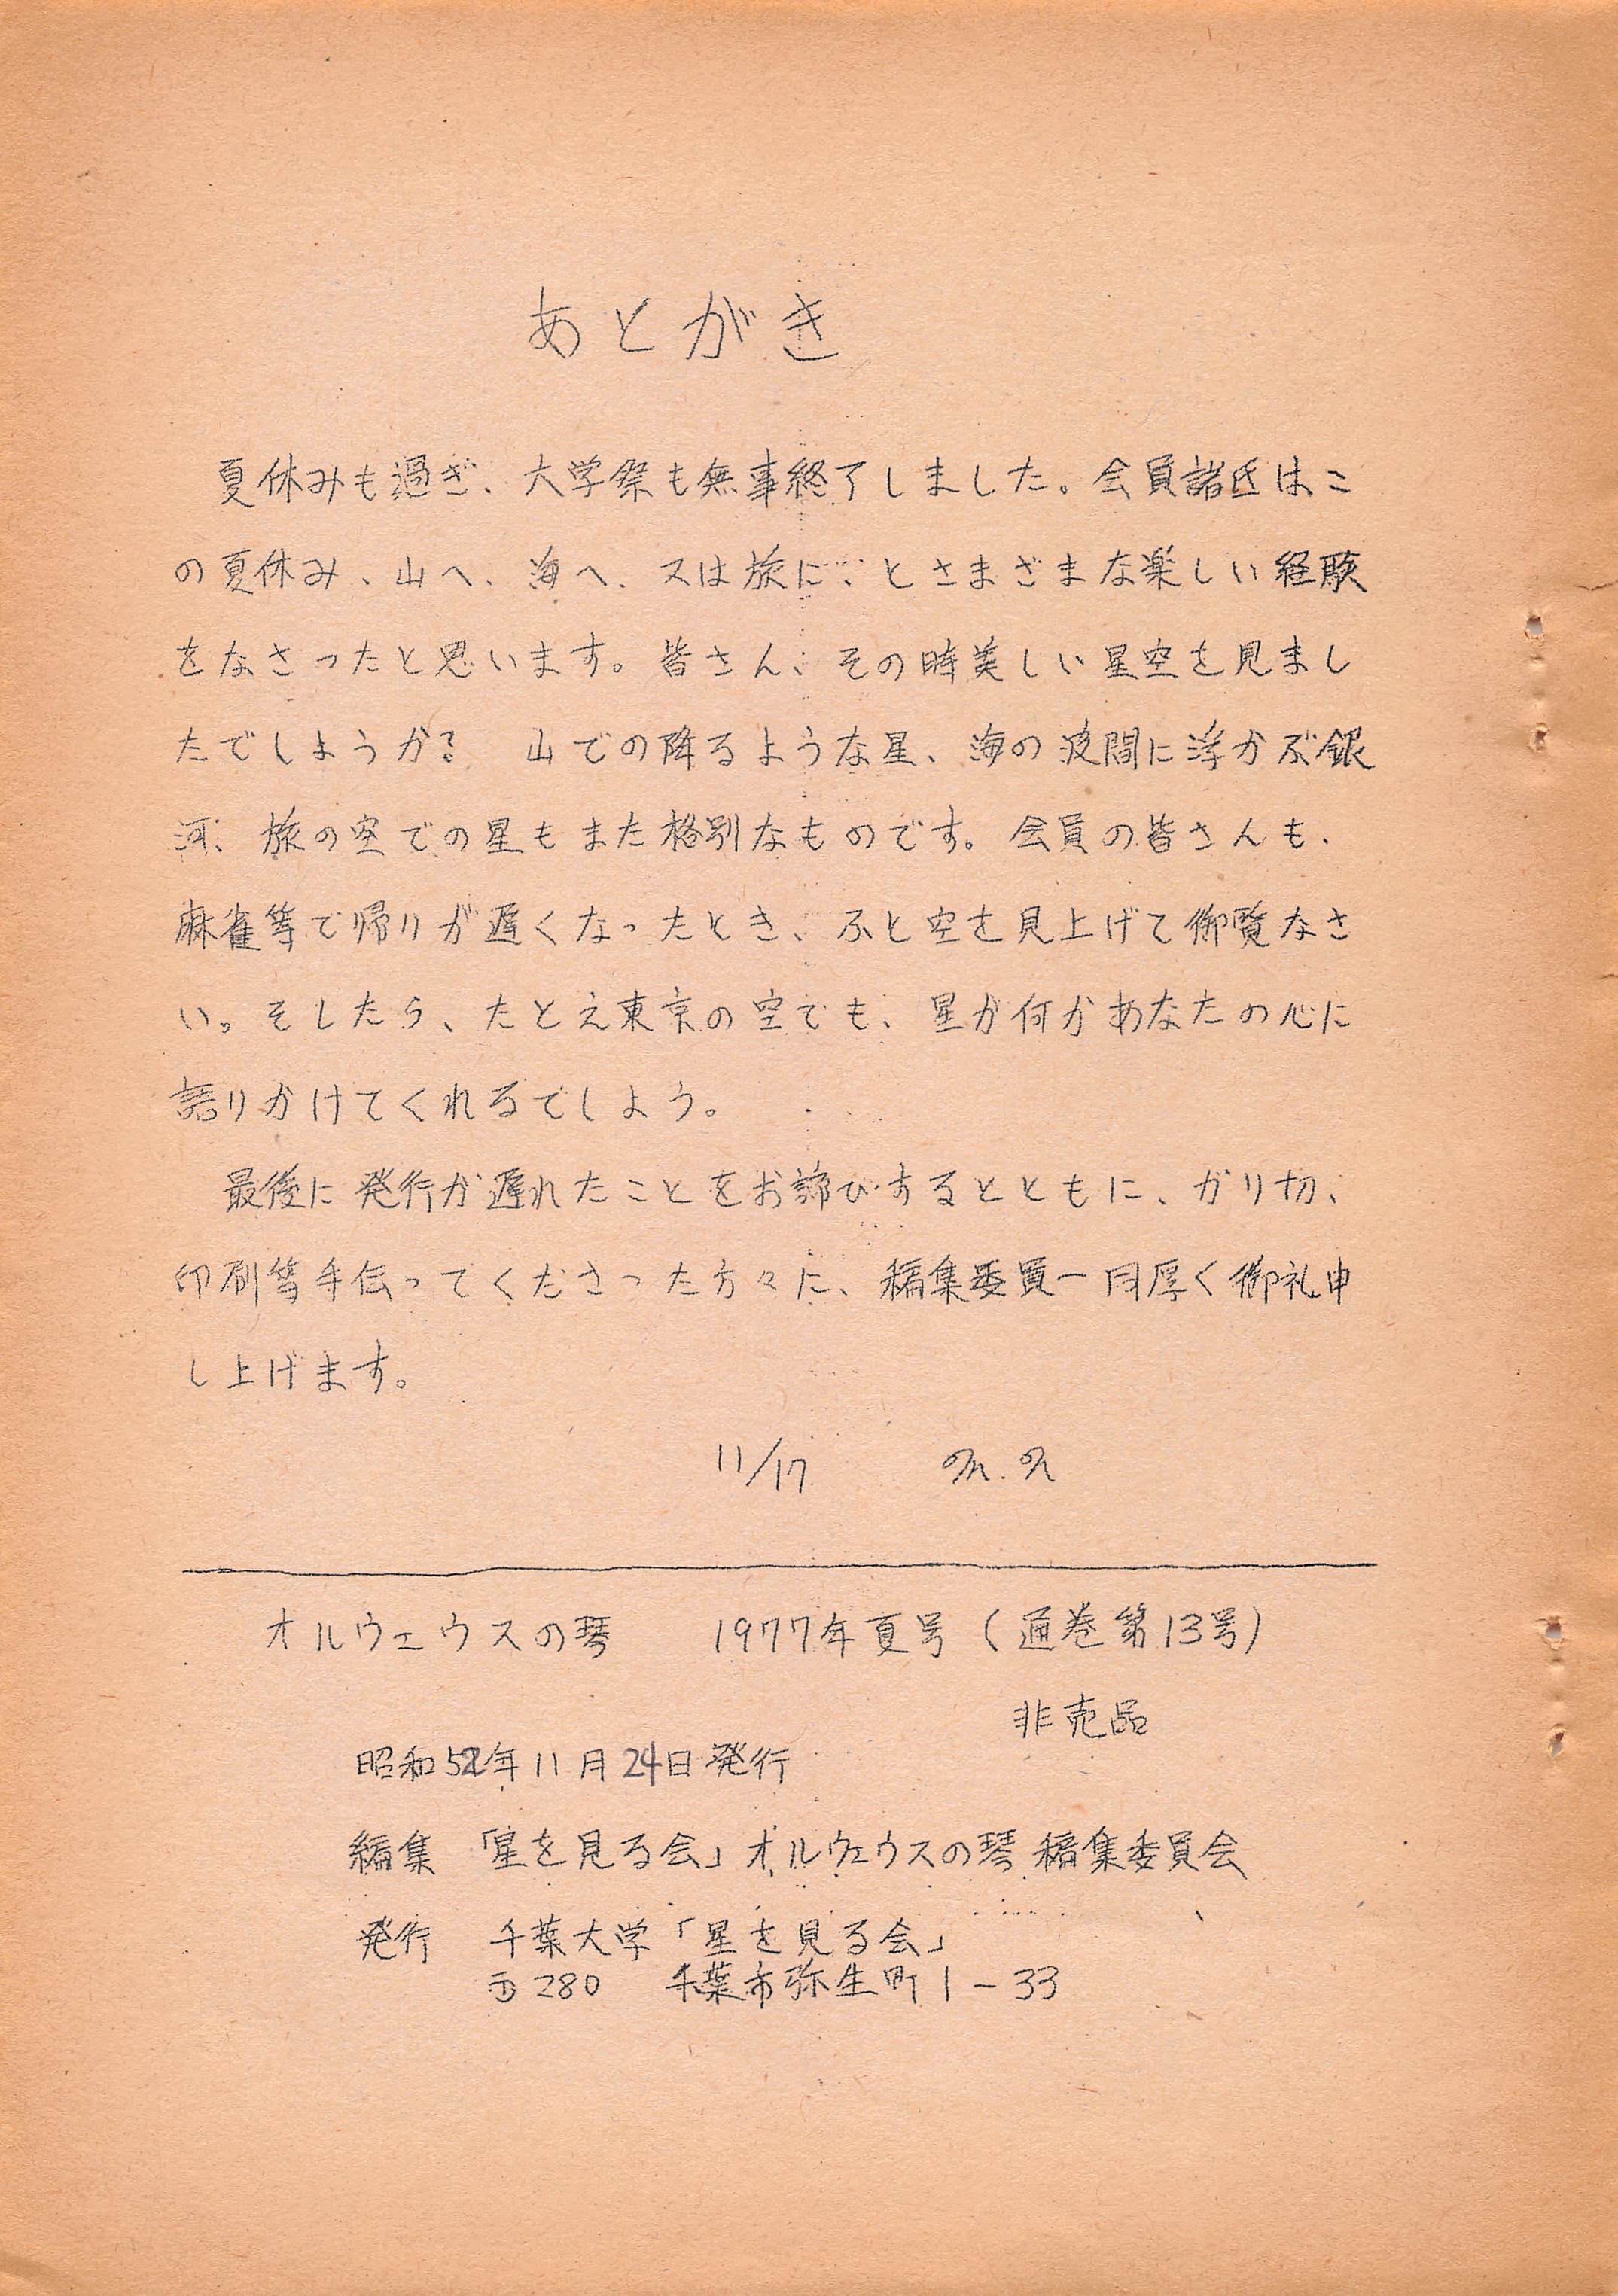 あとがき
夏休みも過ぎ、大学祭も無事終了しました。会員諸氏はこ
の夏休み、山へ、海へ、又は旅に、とさまざまな楽しい経験
をなさったと思います。皆さん、その時美しい星空を見まし
たでしょうか? 山での降るような星、海の波間に浮かぶ銀
河、旅の空での星もまた格別なものです。会員の皆さんも、
麻雀等で帰りが遅くなったとき、ふと空を見上げて御覧なさ
い。そしたら、たとえ東京の空でも、星が何かあなたの心に
語りかけてくれるでしょう。
最後に発行が遅れたことをお詫びするとともに、ガリ切、
印刷等手伝ってくださった方々に、編集委員一同厚く御礼申
し上げます。
11/17 M.N
オルウェウスの琴 1977年夏号(通巻第13号)
非売品
昭和52年11月24日発行
編集 「星を見る会」オルウェウスの琴編集委員会
発行 千葉大学「星を見る会」
〒280 千葉市弥生町1-33